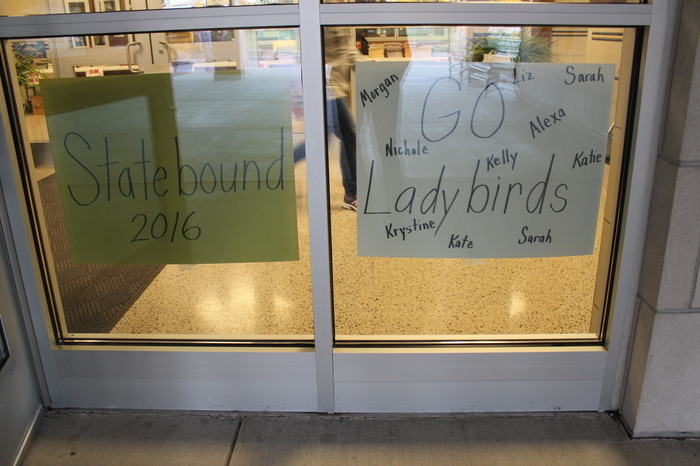 State bound
2016
Morgan
GO
Liz
Sarah
Alexa
Nichole
Kelly
Katie
Lady birds
Krystine
Kate
Sarah